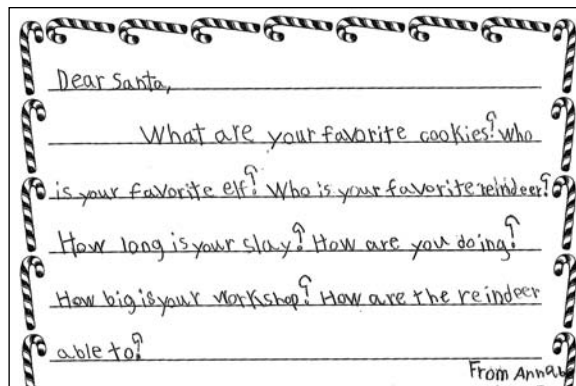 Dear Santa,
What are your favorite cookies? who
is your favorite elf? Who is your favorite reindeer?
How long is your slay? How are you doing?
How big is your workshop? How are the reindeer
able to?
From Annab